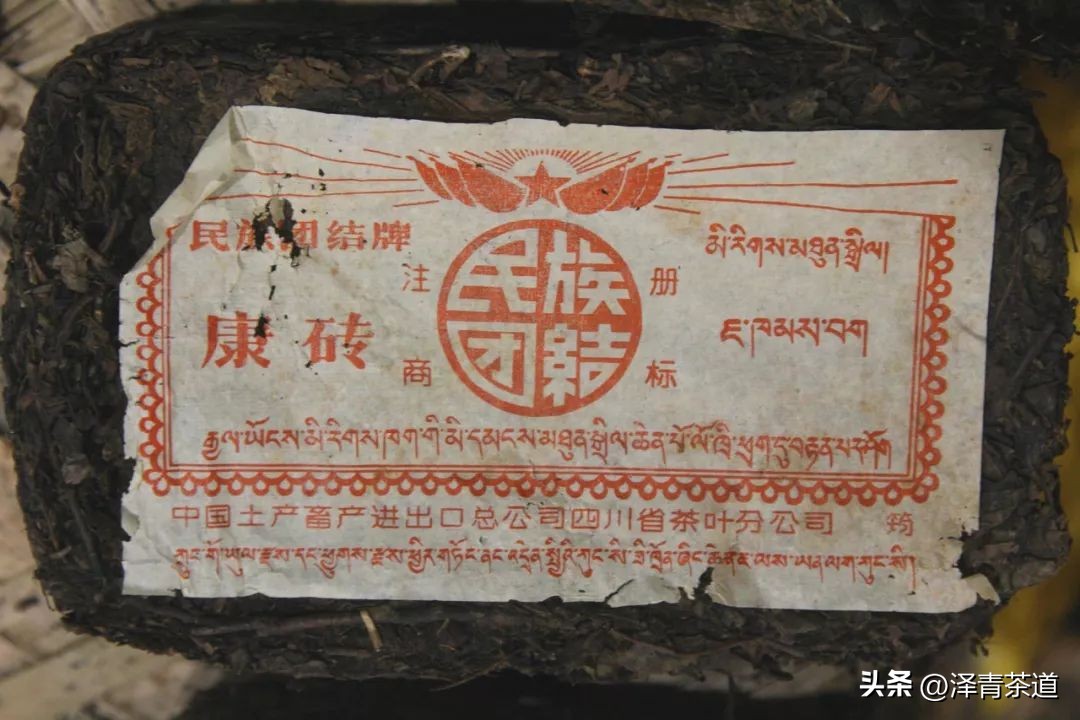 民族团结牌
注 册
商 标
民族
团結
康砖
མི་རིགས་མཐུན་སྒྲིལ།
ཇ་ཁམས་བག
རྒྱལ་ཡོངས་མི་རིགས་ཁག་གི་མི་དམངས་མཐུན་སྒྲིལ་ཆེན་པོ་ལོ་ཁྲི་ཕྲག་ཏུ་བརྟན་པར་ཤོག
中国土产畜产进出口总公司四川省茶叶分公司 筠
ཀྲུང་གོ་ཡུལ་རྫས་དང་ཕྱུགས་རྫས་ཕྱིར་གཏོང་ནང་འདྲེན་སྤྱིའི་ཀུང་སི་ཟི་ཁྲོན་ཞིང་ཆེན་ཇ་ལས་ཡན་ལག་ཀུང་སི།
头条 @泽青茶道